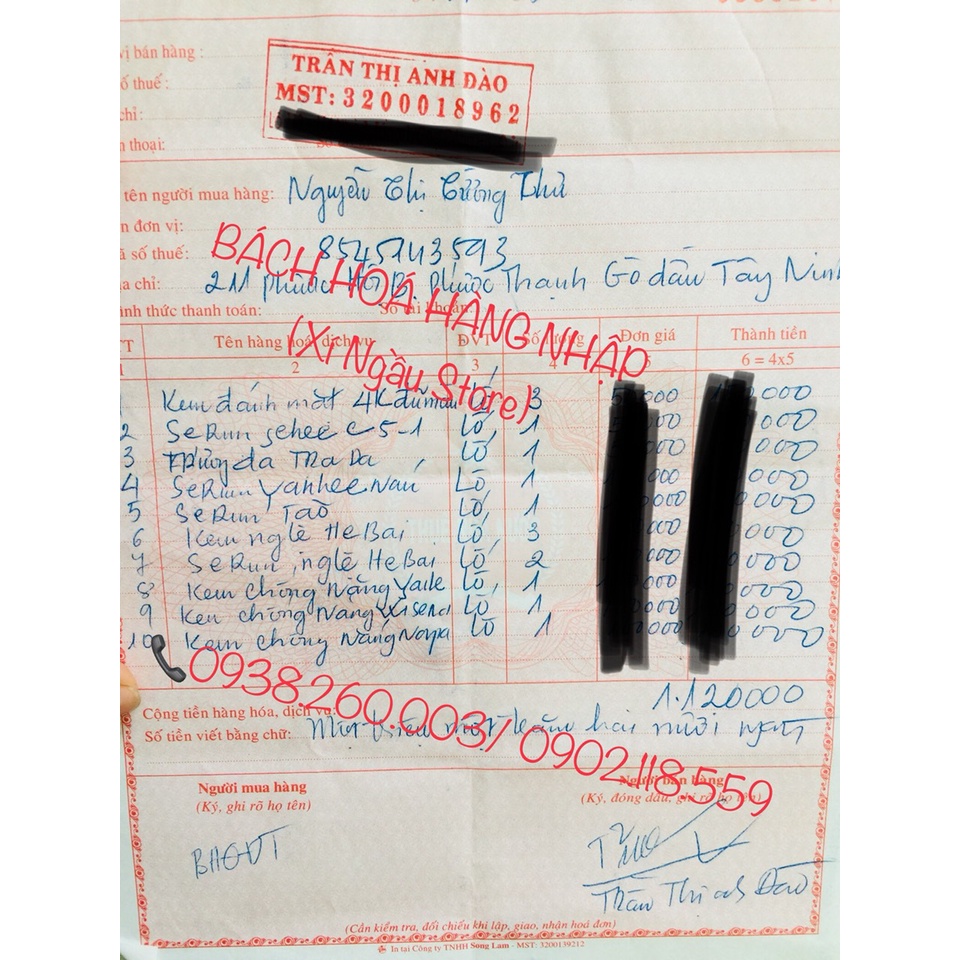 vị bán hàng :
ố thuế :
chỉ :
n thoại:
TRẦN THỊ ANH ĐÀO
MST: 3200018962
tên người mua hàng: Nguyễn Thị Cường Thư
n đơn vị:
ã số thuế: 8545143593
a chỉ: 211 Phước Hội B, Phước Thạnh Gò dầu Tây Ninh
ình thức thanh toán: Số tài khoản:
BÁCH HOÁ HÀNG NHẬP
(Xí Ngầu Store)
TT Tên hàng hoá, dịch vụ ĐVT Số lượng Đơn giá Thành tiền
1 2 3 4 5 6 = 4x5
1 Kem đánh mắt 4K Lọ 3 000 000
2 SeRun C 5-1 Lọ 1 000
3 Da Lọ 1 000
4 SeRun Yanhee Nám Lọ 1 000 000
5 SeRun Táo Lọ 1 000 000
6 Kem nghệ HeBai Lọ 3 000 000
7 SeRun nghệ HeBai Lọ 2 000 000
8 Kem chống Nắng Lọ 1 000 000
9 Kem chống Nắng Lọ 1 000 000
10 Kem chống Nắng Lọ 1 000 000
0938.260.003 / 0902.118.559
Cộng tiền hàng hóa, dịch vụ: 1.120000
Số tiền viết bằng chữ: Một triệu một trăm hai mươi ngàn
Người mua hàng
(Ký, ghi rõ họ tên)
Người bán hàng
(Ký, đóng dấu, ghi rõ họ tên)
BHGVT
Trần Thị Anh Đào
(Cần kiểm tra, đối chiếu khi lập, giao, nhận hoá đơn)
In tại Công ty TNHH Song Lam - MST: 3200139212